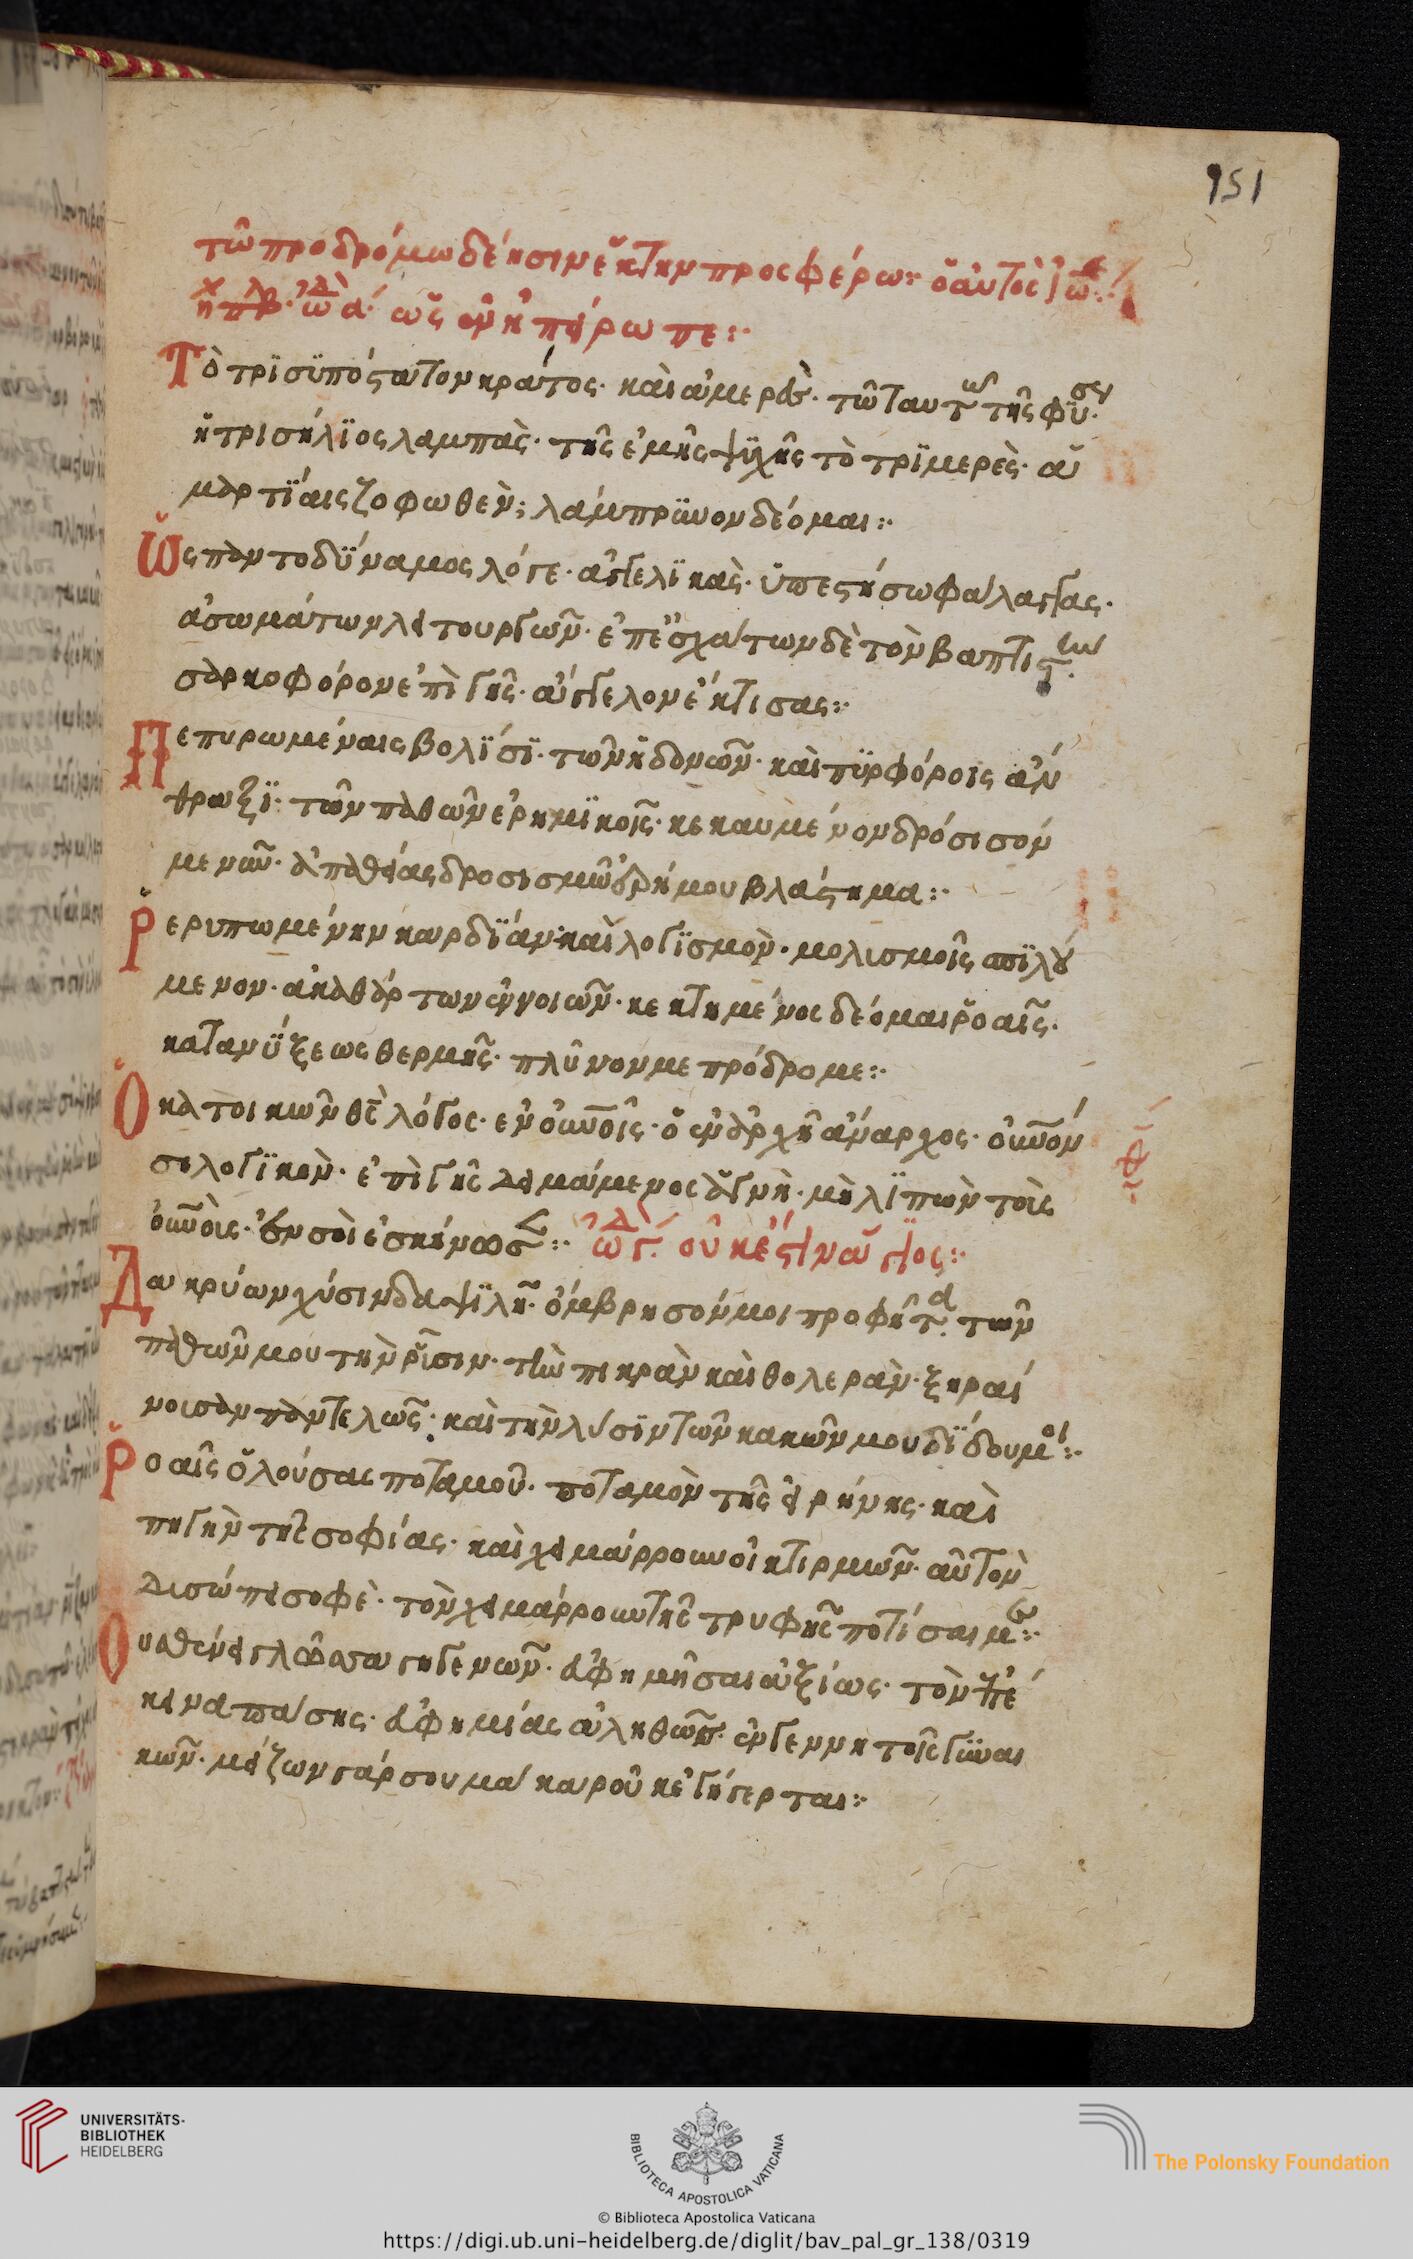 151
τῶ προδρόμω δέησιν ἔκτην προσφέρω:· ὁ αὐτὸς ἰω:·
ἦχ πλ β· ὠδ α· ὡς ἐν ἠπείρω πε:·
Τὸ τρϊσϋπόστατον κράτος· καὶ ἀμερὲς· τῶ ταυτ τῆς φϋσει·
ἡ τρισήλϊος λαμπὰς· τῆς ἐμῆς ψϋχῆς τὸ τρϊμερὲς· ἁ
μαρτϊαις ζοφωθὲν; λάμπρϋνον δέομαι:·
Ὡς παντοδϋναμος λόγε· ἀγγελϊκὰς· ὑπεστήσω φάλαγγας·
ἀσωμάτων λειτουργῶν· ἐπ' ἐσχάτων δὲ τὸν βαπτιστ
σαρκοφόρον ἐπὶ γῆς· ἄγγελον ἔκτισας:·
Πεπυρωμέναις βολϊσϊ· τῶν ἡδονῶν· καὶ πϋρφόροις ἄν
θραξϊ· τῶν παθῶν ἐρημϊκοῖς· κεκαυμένον δρόσισόν
με νῦν· ἀπαθείας δροσισμῶ ἐρήμου βλάστημα:·
Ῥερυπωμένην καρδϊαν· καὶ λογϊσμὸν· μολισμοῖς σπϊλού
μενον· ἀκαθάρτων ἐννοιῶν· κεκτημένος δέομαι ῥοαῖς·
κατανϋξεως θερμῆς· πλῦνον με πρόδρομε:·
Ὁ κατοικῶν θς λόγος· ἐν οὐνοῖς· ὁ ἐν ἀρχῆ ἄναρχος· οὐνόν
σε λογϊκὸν· ἐπὶ γῆς δειμάμενος ἁγνὴ· μὴ λϊπὼν τοὶς
οὐνοὶς· ἐν σοὶ ἐσκήνωσ:· ὠδ γ· οὐκ ἔστιν ἅγϊος:·
Δακρύων χύσιν δαψϊλῆ· ὄμβρησόν μοι προφῆτα· τῶν
παθῶν μου τὴν ῥῦσιν· τὴν πικρὰν καὶ θολερὰν· ξηραί
νοισαν παντελῶς· καὶ τὴν λύσϊν τῶν κακῶν μου δϊδου μοι:·
Ῥοαῖς ὁ λούσας ποταμοῦ· ποταμὸν τῆς εἰρήνης· καὶ
πηγὴν τῆς σοφίας· καὶ χειμάρροων οἰκτιρμῶν· αὐτὸν
δισώπει σοφὲ· τὸν χειμάρρουν τῆς τρυφῆς ποτίσαι με:·
Οὐ σθένει γλῶσσα γηγενῶν· εὐφημῆσαι ἀξίως· τὸν ἐπέ
κεινα πάσης· εὐφημίας ἀληθῶς· ἐν γεννητοῖς γϋναι
κῶν· μείζων γάρ σου μάκαρ οὐκ ἐγήγερται:·
UNIVERSITÄTS-
BIBLIOTHEK
HEIDELBERG
BIBLIOTECA APOSTOLICA VATICANA
The Polonsky Foundation
© Biblioteca Apostolica Vaticana
https://digi.ub.uni-heidelberg.de/diglit/bav_pal_gr_138/0319